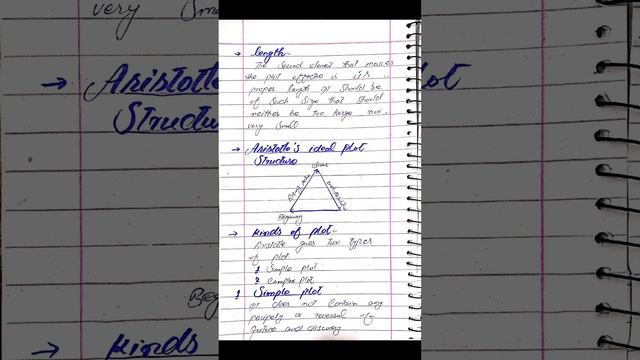 very small
→ Aristotle's ideal plot
Structure
→ Kinds
→ length -
The Second element that makes
the plot effective is its
proper length It should be
of such size that should
neither be too large nor
very small
→ Aristotle's ideal plot
Structure
Rising action
Beginning
→ Kinds of plot -
Aristotle gives two types
of plot
1 Simple plot
2 Complex plot
1 Simple plot
It does not contain any
or reversal
and